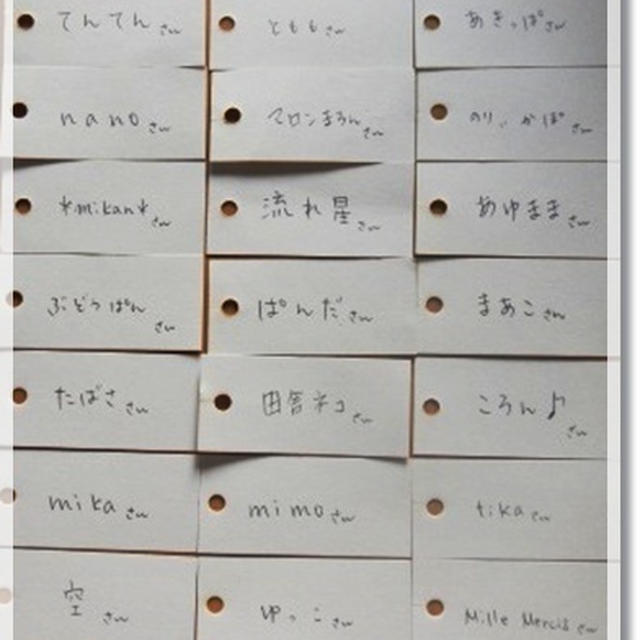 てんてんさん
とももさん
あきっぱさん
nanoさん
マロンまろんさん
のりぃかぱさん
*mikan*さん
流れ星さん
あゆままさん
ぶどうぱんさん
ぱんださん
まあこさん
たばささん
田舎ネコさん
ころん♪さん
mikaさん
mimoさん
tikaさん
空さん
ゆっこさん
Mille Mercisさん